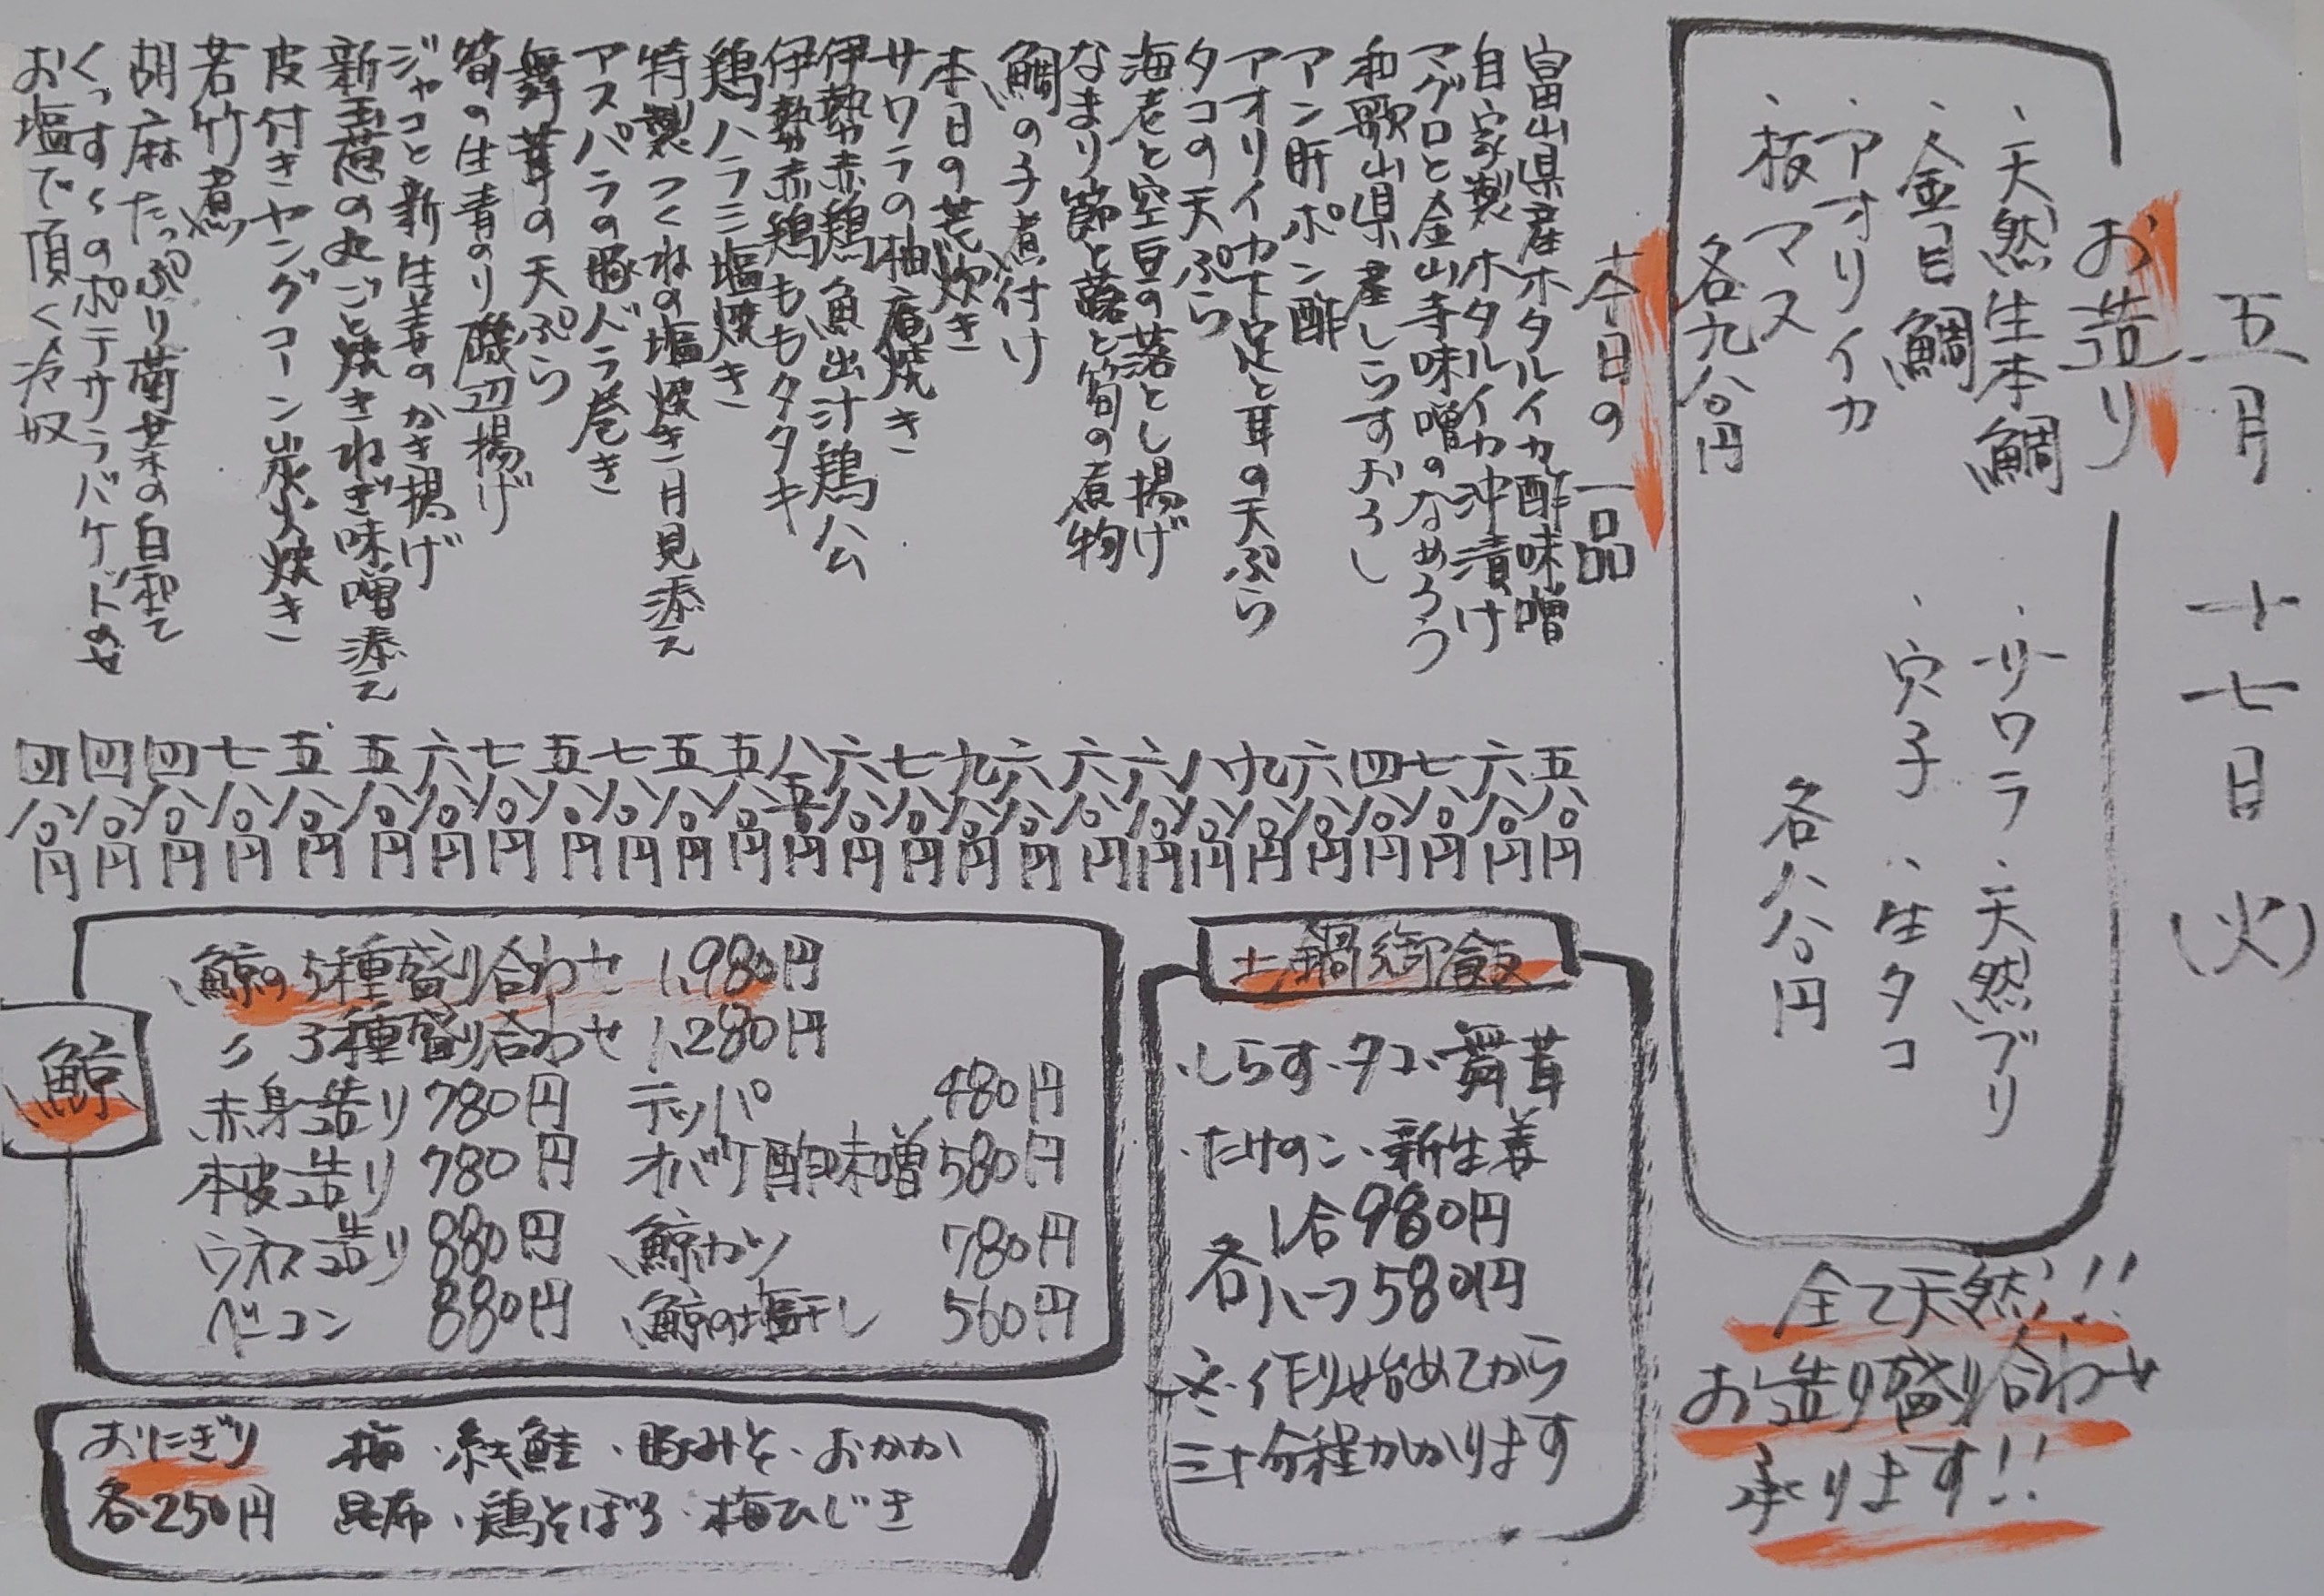 五月十七日(火)
お造り
・天然生本鯛 ・サワラ ・天然ブリ
・金目鯛 ・穴子 ・生タコ
・アオリイカ
・板マス
各九八〇円 各八八〇円
全て天然!!
お造り盛り合わせ
承ります!!
本日の一品
富山県産ホタルイカ酢味噌 五八〇円
自家製ホタルイカ沖漬け 六八〇円
マグロと金山寺味噌のなめろう 七八〇円
和歌山県産しらすおろし 四八〇円
アン肝ポン酢 六八〇円
アオリイカ下足と耳の天ぷら 九八〇円
タコの天ぷら 八八〇円
海老と空豆の落とし揚げ 六八〇円
なまり節と蕗と筍の煮物 六八〇円
鯛の子煮付け 六八〇円
本日の荒炊き 九八〇円
サワラの柚庵焼き 七八〇円
伊勢赤鶏 魚出汁鶏ハム 六八〇円
伊勢赤鶏ももタタキ 八五〇円
鶏ハラミ塩焼き 五八〇円
特製つくねの塩焼き 月見添え 五八〇円
アスパラの豚バラ巻き 七八〇円
舞茸の天ぷら 五八〇円
筍の生青のり磯辺揚げ 七八〇円
ジャコと新生姜のかき揚げ 六八〇円
新玉葱の丸ごと焼きねぎ味噌添え 五八〇円
皮付きヤングコーン炭火焼き 五八〇円
若竹煮 七八〇円
胡麻たっぷり菊菜の白和え 四八〇円
のポテサラバケットのせ 四八〇円
お塩で頂く冷奴 四八〇円
土鍋御飯
・しらす・タコ・舞茸
・たけのこ・新生姜
各1合980円
ハーフ580円
※作り始めてから
三十分程かかります
鯨
・鯨の5種盛り合わせ 1,980円
〃 3種盛り合わせ 1,280円
赤身造り 780円 テッパ 480円
本皮造り 780円 オバケ酢味噌 580円
ウネス造り 880円 鯨カツ 780円
ベーコン 880円 鯨の塩干し 560円
おにぎり 梅・紅鮭・豚みそ・おかか
各250円 昆布・鶏そぼろ・梅ひじき